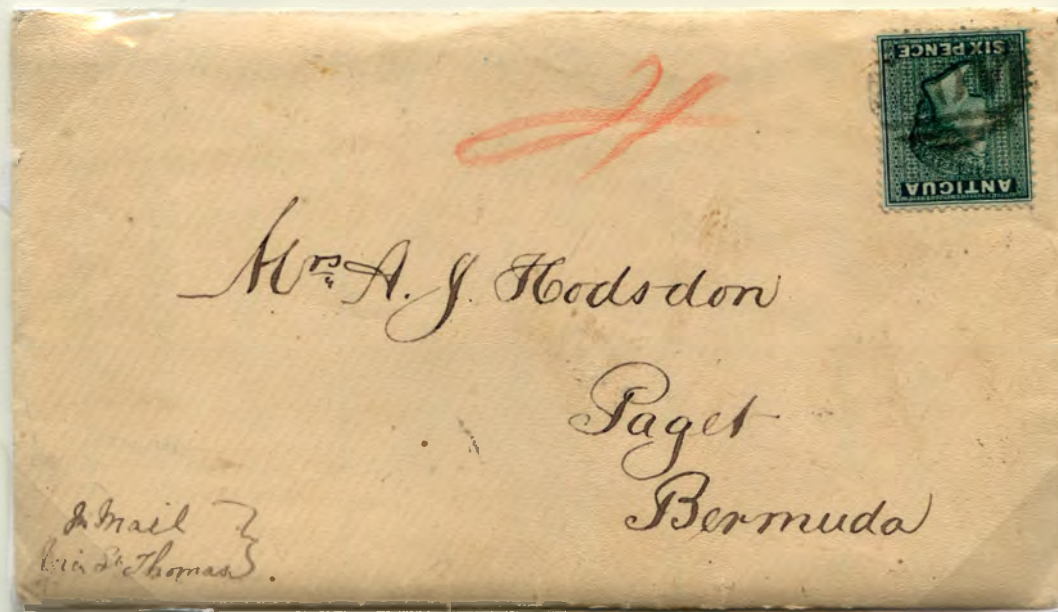 SIX PENCE
ANTIGUA
4
Mrs A. J. Hodsdon
Paget
Bermuda
Mail
via St Thomas